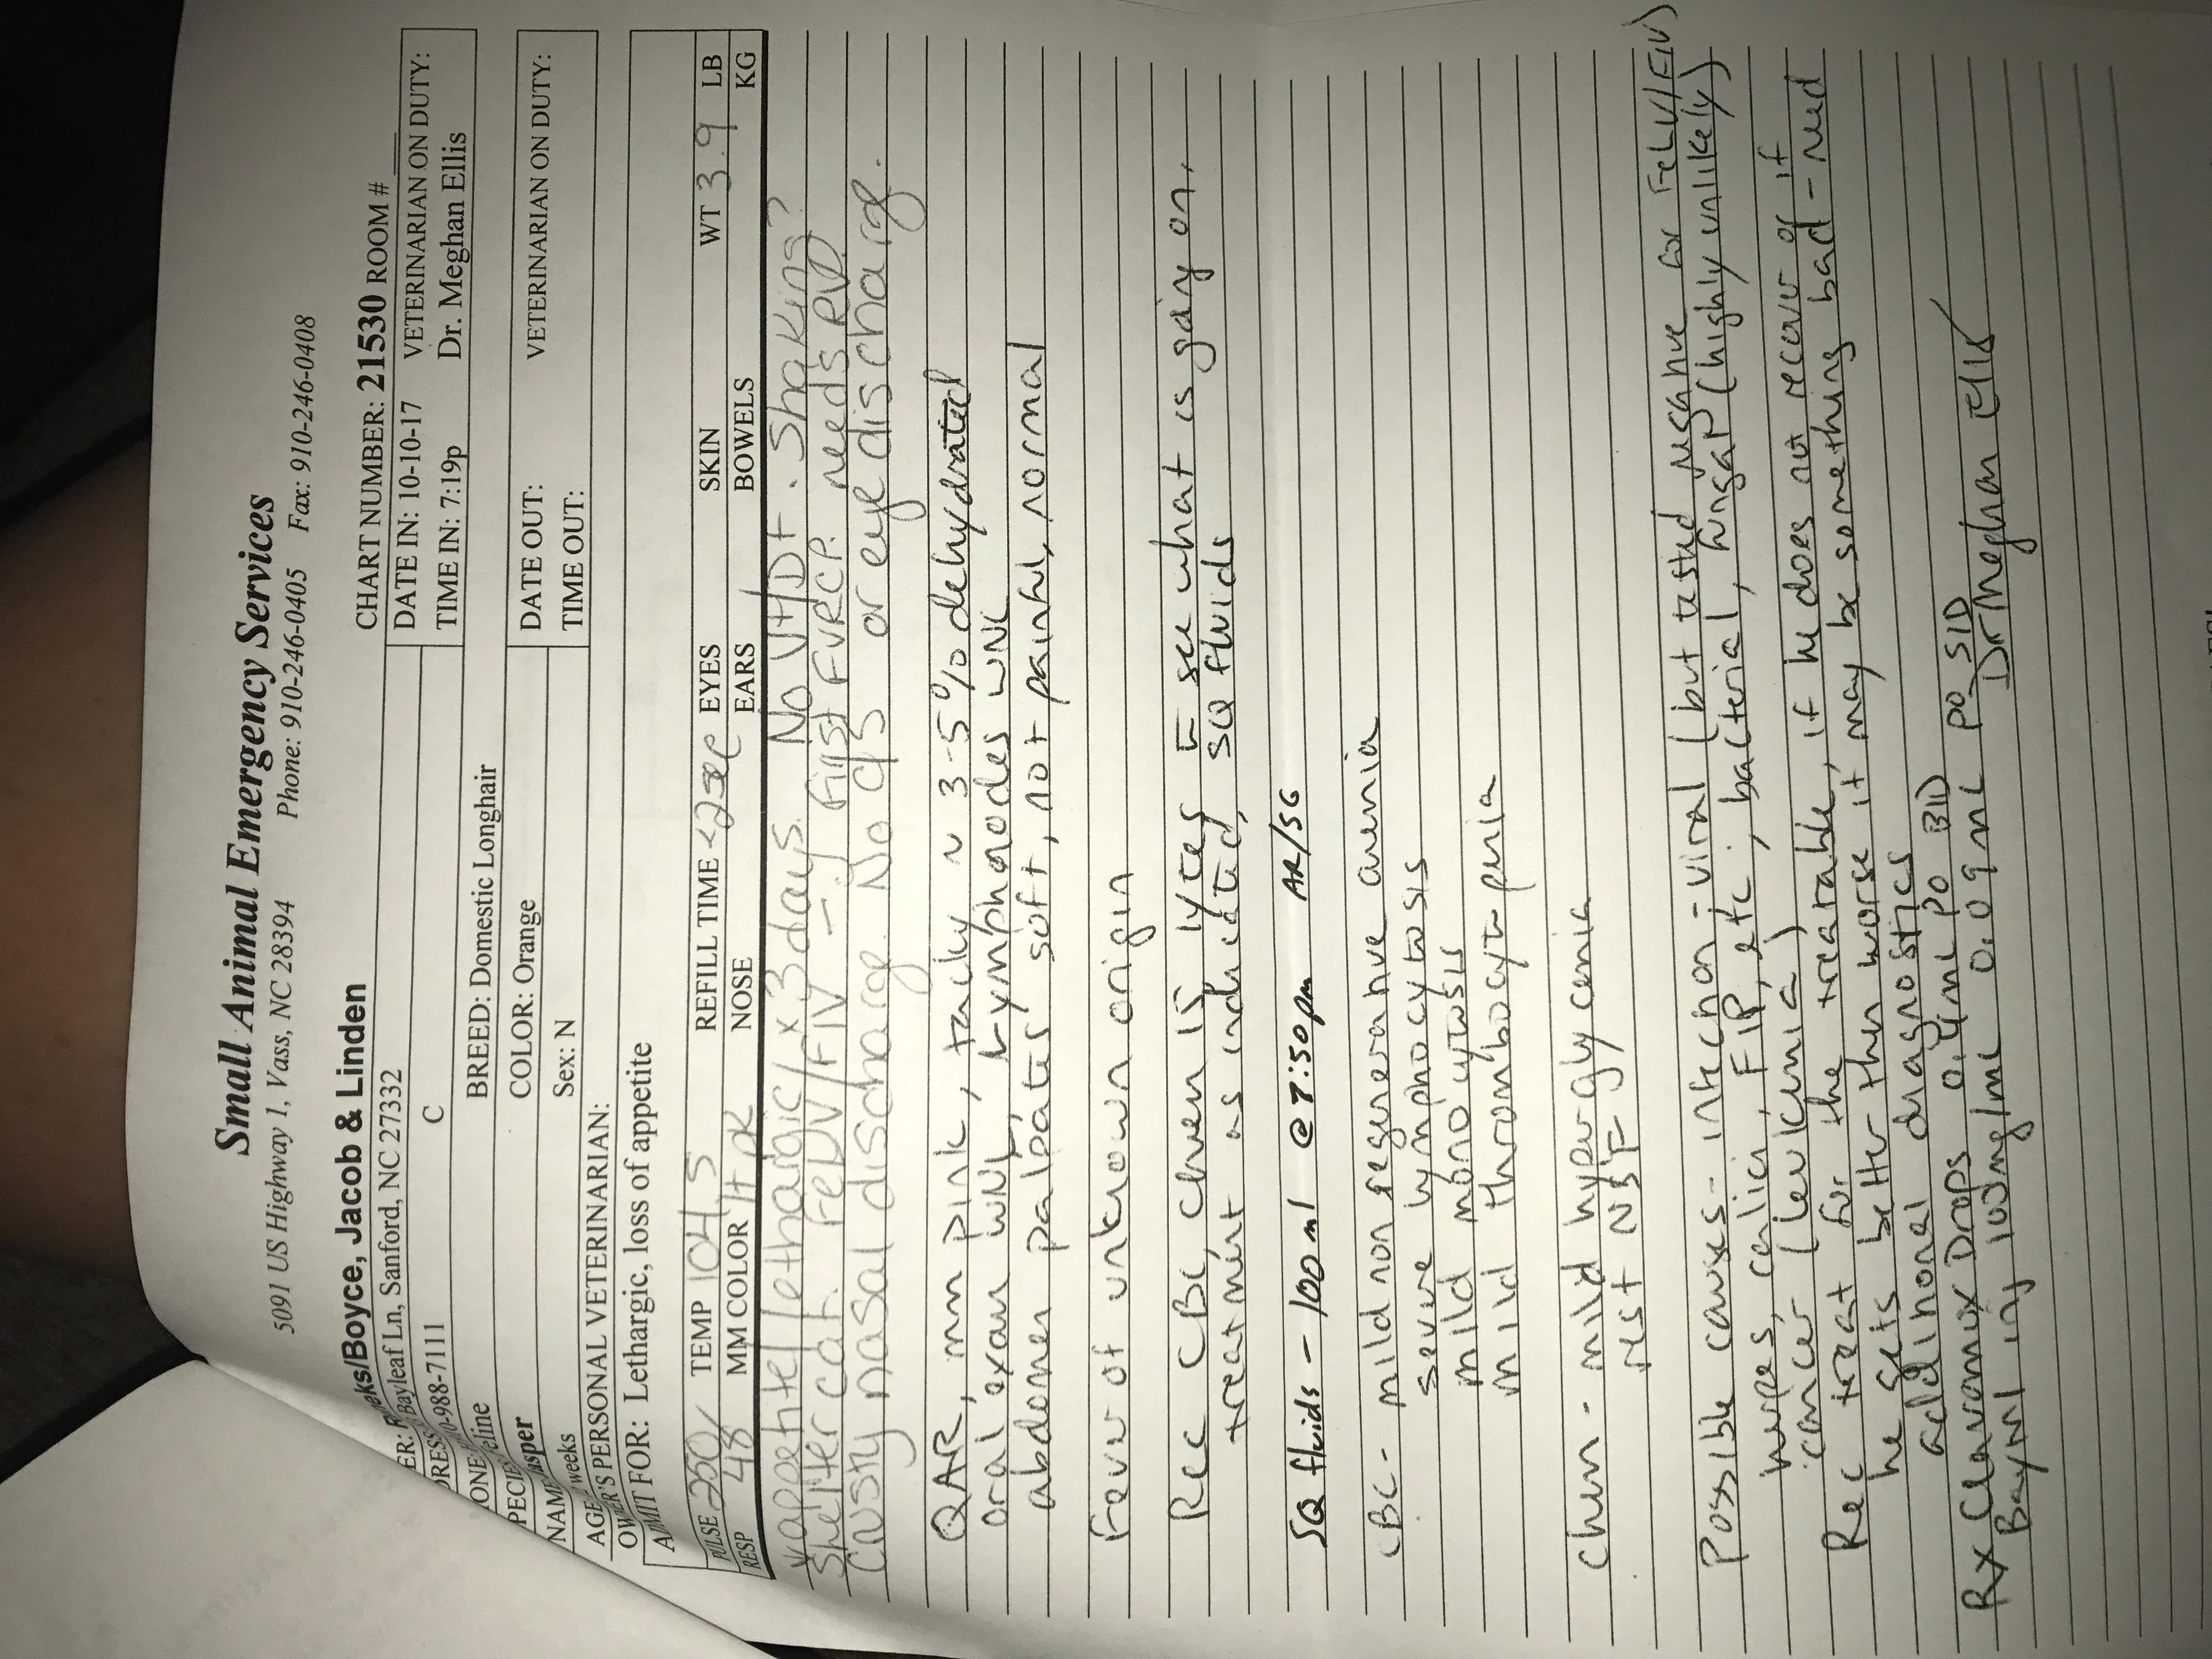 Small Animal Emergency Services
5091 US Highway 1, Vass, NC 28394 Phone: 910-246-0405 Fax: 910-246-0408
eks/Boyce, Jacob & Linden
CHART NUMBER: 21530 ROOM #
Bayleaf Ln, Sanford, NC 27332
DATE IN: 10-10-17 VETERINARIAN ON DUTY:
-988-7111 C
TIME IN: 7:19p Dr. Meghan Ellis
eline
BREED: Domestic Longhair
DATE OUT: VETERINARIAN ON DUTY:
asper
COLOR: Orange
TIME OUT:
weeks
Sex: N
OWNER'S PERSONAL VETERINARIAN:
ADMIT FOR: Lethargic, loss of appetite
PULSE 250 TEMP 104.5 REFILL TIME <2sec EYES SKIN WT 3.9 LB
RESP 48 MM COLOR lt pk NOSE EARS BOWELS KG
↓appetite/lethargic/ x 3 days. No V+/D+. Shaking?
Shelter cat. FeLV/FIV – First FVRCP. needs RV.
Crusty nasal discharge. No c/s or eye discharge.
QAR, mm pink, tacky ~ 3-5% dehydrated
oral exam WNL, Lymphnodes WNL
abdomen palpates soft, not painful, normal
Fever of unknown origin
Rec CBC, Chem 15, lytes to see what is going on,
treatment as indicated, SQ fluids
SQ fluids - 100ml @ 7:50pm AR/SG
CBC - mild non regenerative anemia
severe lymphocytosis
mild monocytosis
mild thrombocytopenia
Chem - mild hyperglycemia
rest NSF
Possible causes - infection - viral (but tested negative for FeLV/FIV)
herpes, calici, FIP, etc, bacterial, fungal (highly unlikely)
cancer (leukemia)
Rec treat for the treatable, if he does not recover or if
he gets better then worse it may be something bad - need
additional diagnostics
Rx Clavamox Drops 0.4mL PO BID
Baytril inj 100mg/mL 0.09mL PO SID
Dr Meghan Ellis